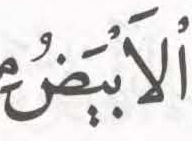 اْلاَبْيَضُ